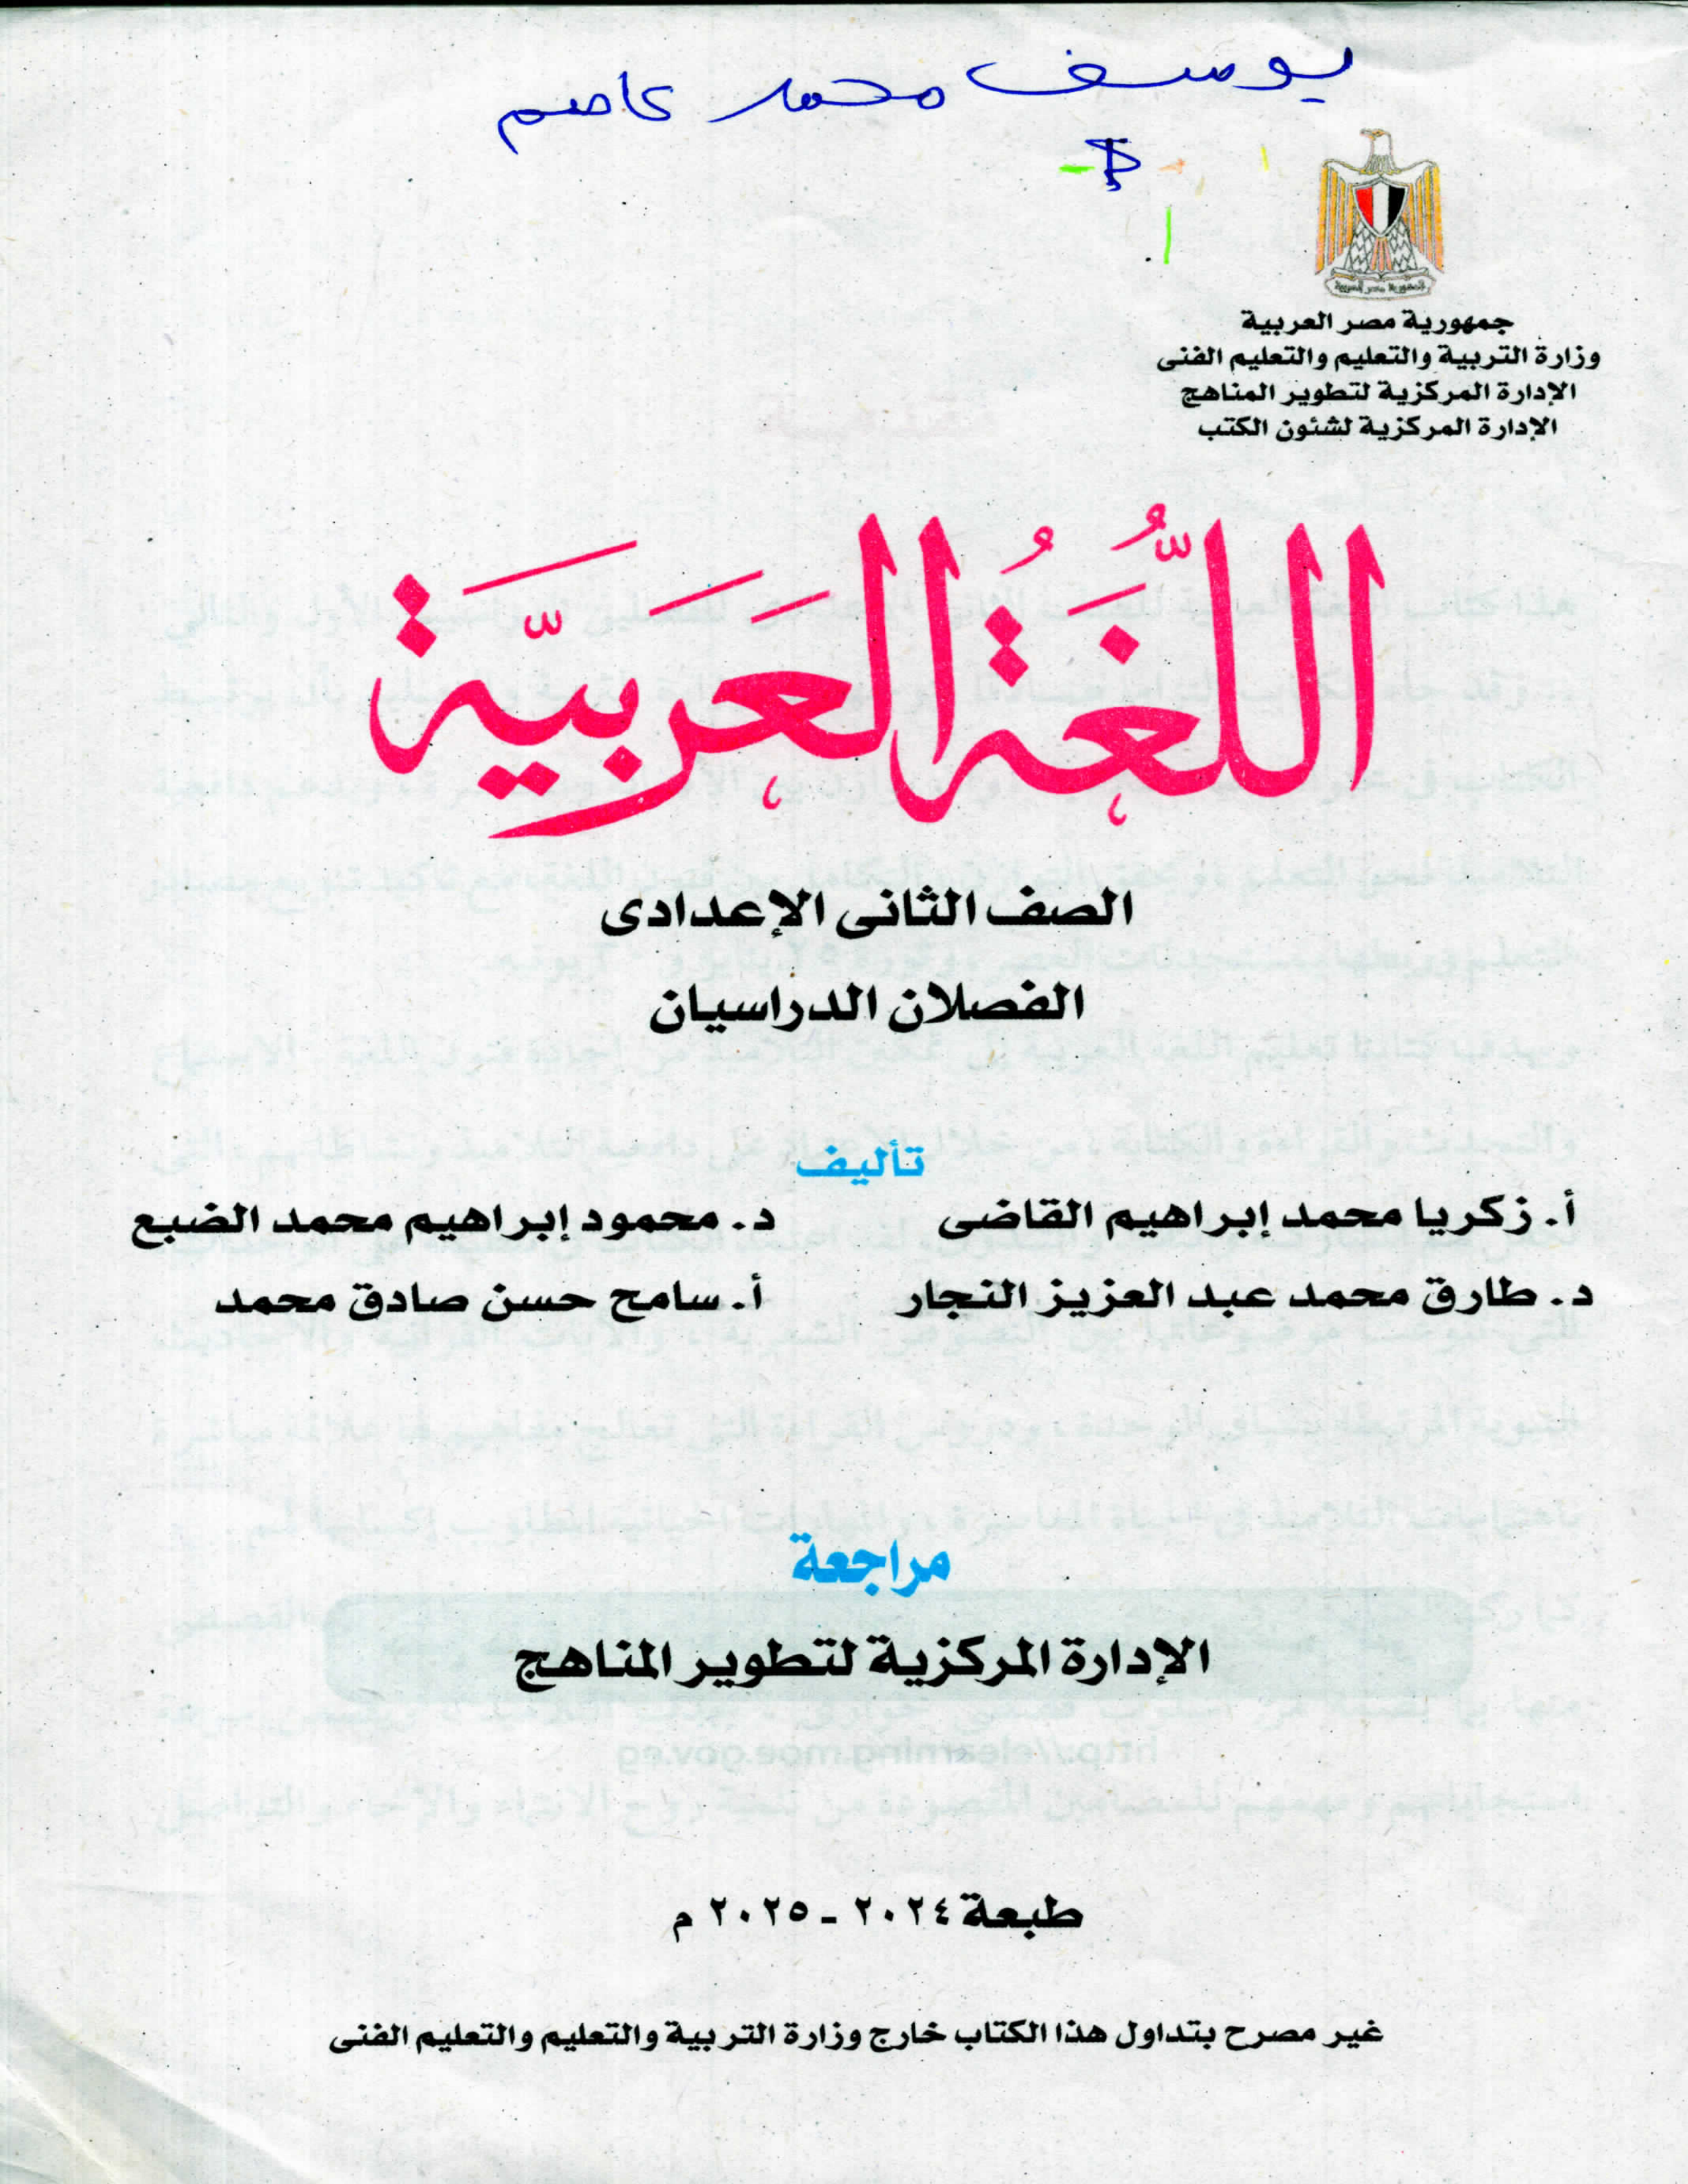 يوسف محمد عاصم
جمهورية مصر العربية
وزارة التربية والتعليم والتعليم الفنى
الإدارة المركزية لتطوير المناهج
الإدارة المركزية لشئون الكتب
اللُّغَةُ العَرَبيَّة
الصف الثانى الإعدادى
الفصلان الدراسيان
تأليف
أ. زكريا محمد إبراهيم القاضى د. محمود إبراهيم محمد الضبع
د. طارق محمد عبد العزيز النجار أ. سامح حسن صادق محمد
مراجعة
الإدارة المركزية لتطوير المناهج
طبعة ٢٠٢٤ - ٢٠٢٥ م
غير مصرح بتداول هذا الكتاب خارج وزارة التربية والتعليم والتعليم الفنى